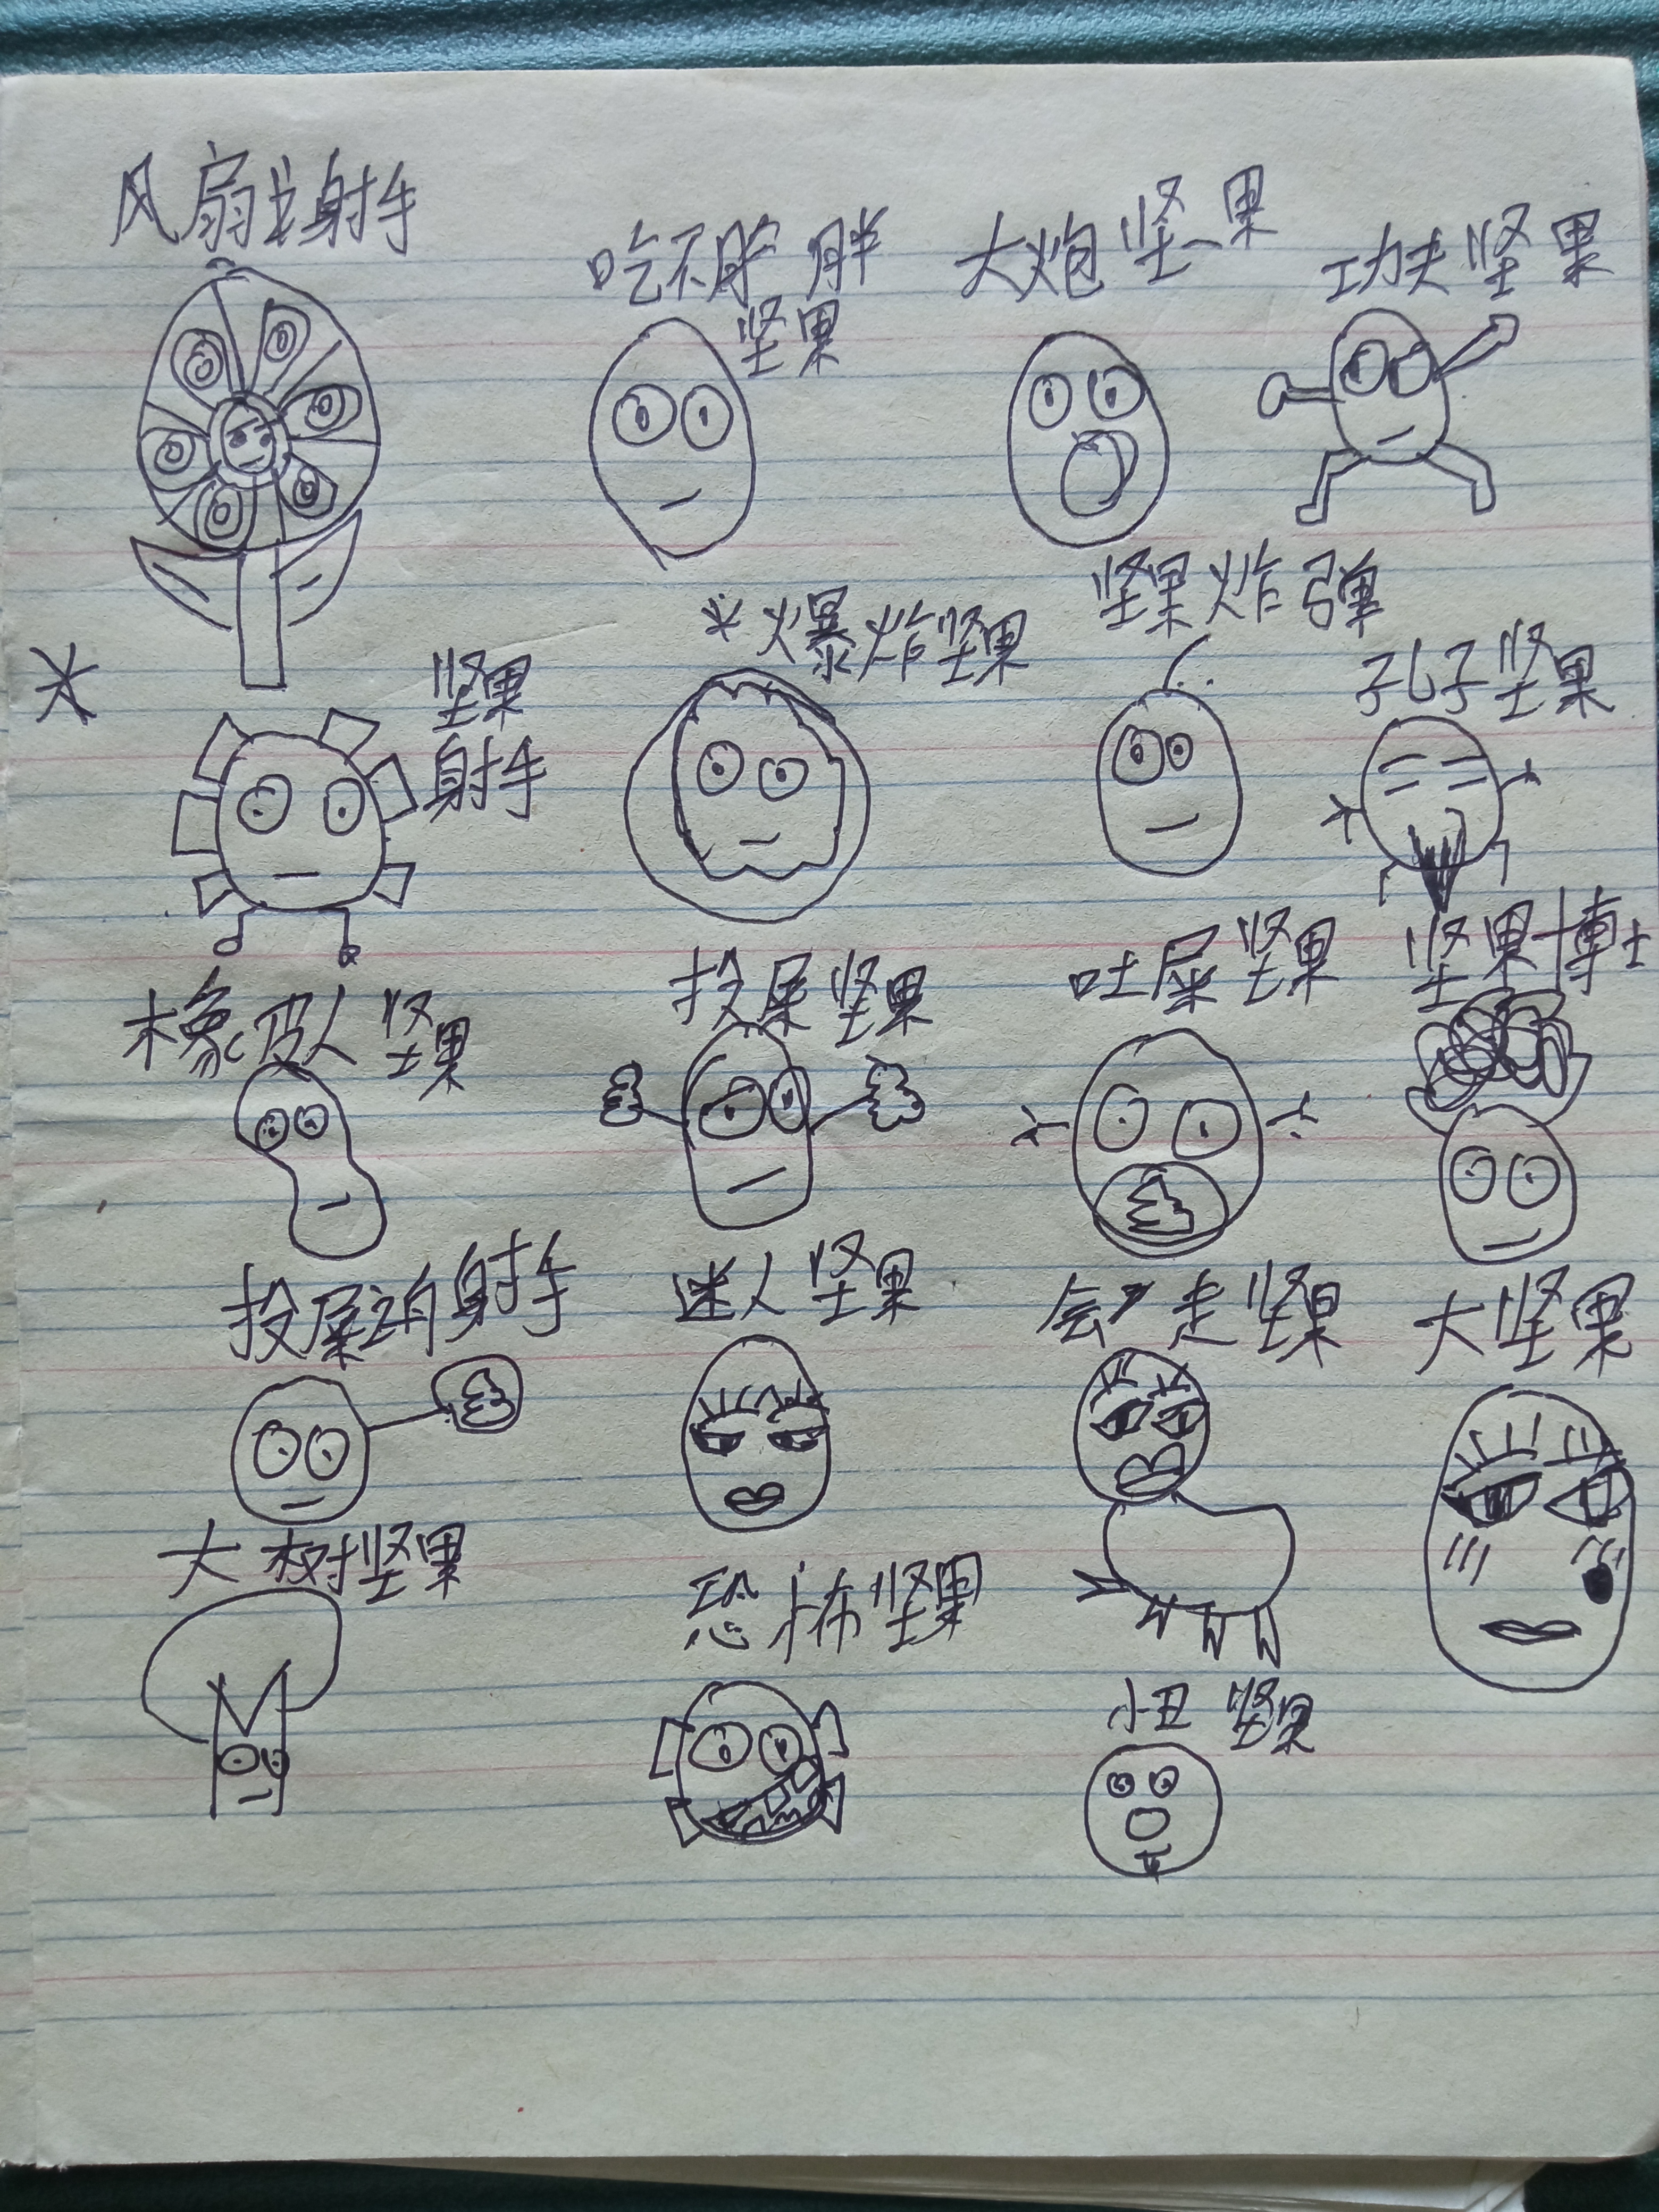 风扇射手
吃不胖
坚果
大炮坚果
功夫坚果
坚果
射手
*爆炸坚果
坚果炸弹
孔子坚果
橡皮人坚果
投屎坚果
吐屎坚果
坚果博士
投屎射手
迷人坚果
会走坚果
大坚果
大树坚果
恐怖坚果
小丑坚果